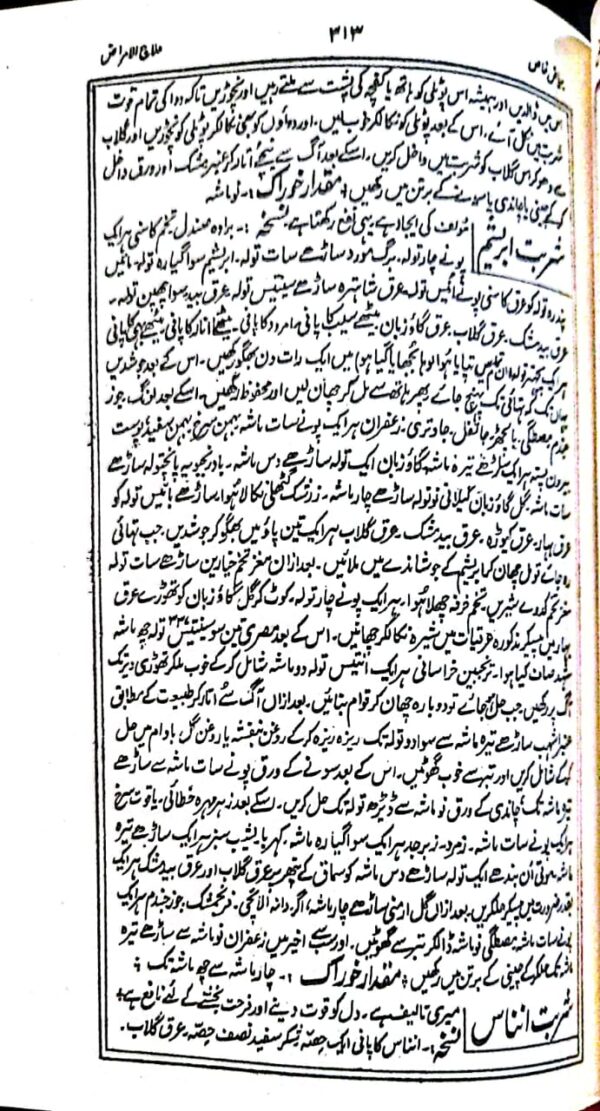 بیاض خاص
۳۱۳
علاج الامراض
اس میں ڈالدیں اور ہمیشہ اس پوٹلی کو ہاتھ یا کفچہ کی پشت سے ملتے رہیں اور نچوڑیں تاکہ دوا کی تمام قوت
شربت میں نکل آئے۔ اس کے بعد پوٹلی کو نکالکر خوب ملیں۔ اور دواؤں کو سمیٹ نکالکر پوٹلی کو نچوڑیں اور گلاب
سے دھوکر اس گلاب کو شربت میں داخل کریں۔ اسکے بعد آگ سے نیچے اُتار کر عنبر مشک اور ورق داخل
کرکے چینی یا چاندی یا سونے کے برتن میں رکھیں۔ مقدار خوراک :۔ نو ماشہ
شربت ابریشم
مؤلف کی ایجاد ہے یہی نفع رکھتا ہے۔ نسخہ :۔ برادہ صندل۔ تخم کاسنی ہر ایک
پونے چار تولہ۔ برگ مورد ساڑھے سات تولہ۔ ابریشم سوا گیارہ تولہ۔ پانیں
پندرہ تولہ کو عرق کاسنی پونے اُنیس تولہ عرق شاہترہ ساڑھے سینتیس تولہ عرق بید سوا چھپن تولہ۔
عرق بیدمشک۔ عرق گلاب۔ عرق گاؤ زبان۔ میٹھے سیب کا پانی۔ امرود کا پانی۔ میٹھے انار کا پانی۔ میٹھے بہی کا پانی
ہر ایک میں تپایا ہوا لوہا بجھایا گیا ہو) میں ایک رات دن بھگو رکھیں۔ اس کے بعد جوشدیں
یہاں تک کہ تہائی تک پہنچ جائے پھر ہاتھ سے مل کر چھان لیں اور محفوظ رکھیں۔ اسکے بعد لونگ۔ جوز
جندم مصطگی۔ بالچھڑ۔ جائفل۔ جاوتری۔ زعفران ہر ایک پونے سات ماشہ بہمن سرخ بہمن سفید پوست
بیرون پستہ ہر ایک ساڑھے تیرہ ماشہ گاؤ زبان ایک تولہ ساڑھے دس ماشہ۔ بادرنجبویہ پانچتولہ ساڑھے
سات ماشہ۔ گل گاؤ زبان گیلانی نو تولہ ساڑھے چار ماشہ۔ زرشک گٹھلی نکالا ہوا۔ ساڑھے بائیس تولہ کو
عرق بہار۔ عرق کیوڑہ۔ عرق بیدمشک۔ عرق گلاب ہر ایک تین پاؤ میں بھگو کر جوشدیں۔ جب تہائی
رہ جائے تو مل چھان کر ابریشم کے جوشاندے میں ملائیں۔ بعد ازاں مغز تخم خیارین ساڑھے سات تولہ
مغز تخم کدوے شیریں۔ تخم خرفہ چھلا ہوا۔ ہر ایک پونے چار تولہ۔ کوٹ کر گل گاؤ زبان کو تھوڑے عرق
بہار میں پیسکر مذکورہ عرقیات میں شیرہ نکالکر چھانیں۔ اس کے بعد مصری تین سو سینتیس ۳۳۷ تولہ چھ ماشہ
شہد صاف کیا ہوا۔ ترنجبین خراسانی ہر ایک انتیس تولہ دو ماشہ شامل کرکے خوب ملکر تھوڑی دیر تک
آگ پر رکھیں۔ جب حل ہو جائے تو دوبارہ چھان کر قوام بنائیں۔ بعد ازاں آگ سے اُتار کر طبیعت کے مطابق
عنبر اشہب ساڑھے تیرہ ماشہ سے سوا دو تولہ تک ریزہ ریزہ کرکے روغن بنفشہ یا روغن گل بادام میں حل
کرکے شامل کریں اور تبر سے خوب گھوٹیں۔ اس کے بعد سونے کے ورق پونے سات ماشہ سے ساڑھے
تیرہ ماشہ تک، چاندی کے ورق نو ماشہ سے ڈیڑھ تولہ تک حل کریں۔ اسکے بعد زہر مہرہ خطائی۔ یاقوت سرخ
ہر ایک پونے سات ماشہ۔ زمرد۔ زبرجد ہر ایک سوا گیارہ ماشہ۔ کہربا یشب سبز ہر ایک ساڑھے تیرہ
ماشہ موتی اَن بندھے ایک تولہ ساڑھے دس ماشہ کو سماق کے پتھر پر عرق گلاب اور عرق بیدمشک ہر ایک
بقدر ضرورت میں پیسکر حل کریں۔ بعد ازاں گل ارمنی ساڑھے چار ماشہ، اگر۔ دانہ الائچی۔ فرنجمشک۔ جوز جندم ہر ایک
پونے سات ماشہ مصطگی نو ماشہ ڈالکر تبر سے گھوٹیں۔ اور سب سے اخیر میں زعفران نو ماشہ سے ساڑھے تیرہ
ماشہ تک ملکر کے چینی کے برتن میں رکھیں۔ مقدار خوراک :۔ چار ماشہ سے چھ ماشہ تک
شربت انناس
میری تالیف ہے۔ دل کو قوت دینے اور فرحت بخشنے کے لئے نافع ہے۔
نسخہ :۔ انناس کا پانی ایک حصہ شکر سفید نصف حصہ۔ عرق گلاب۔